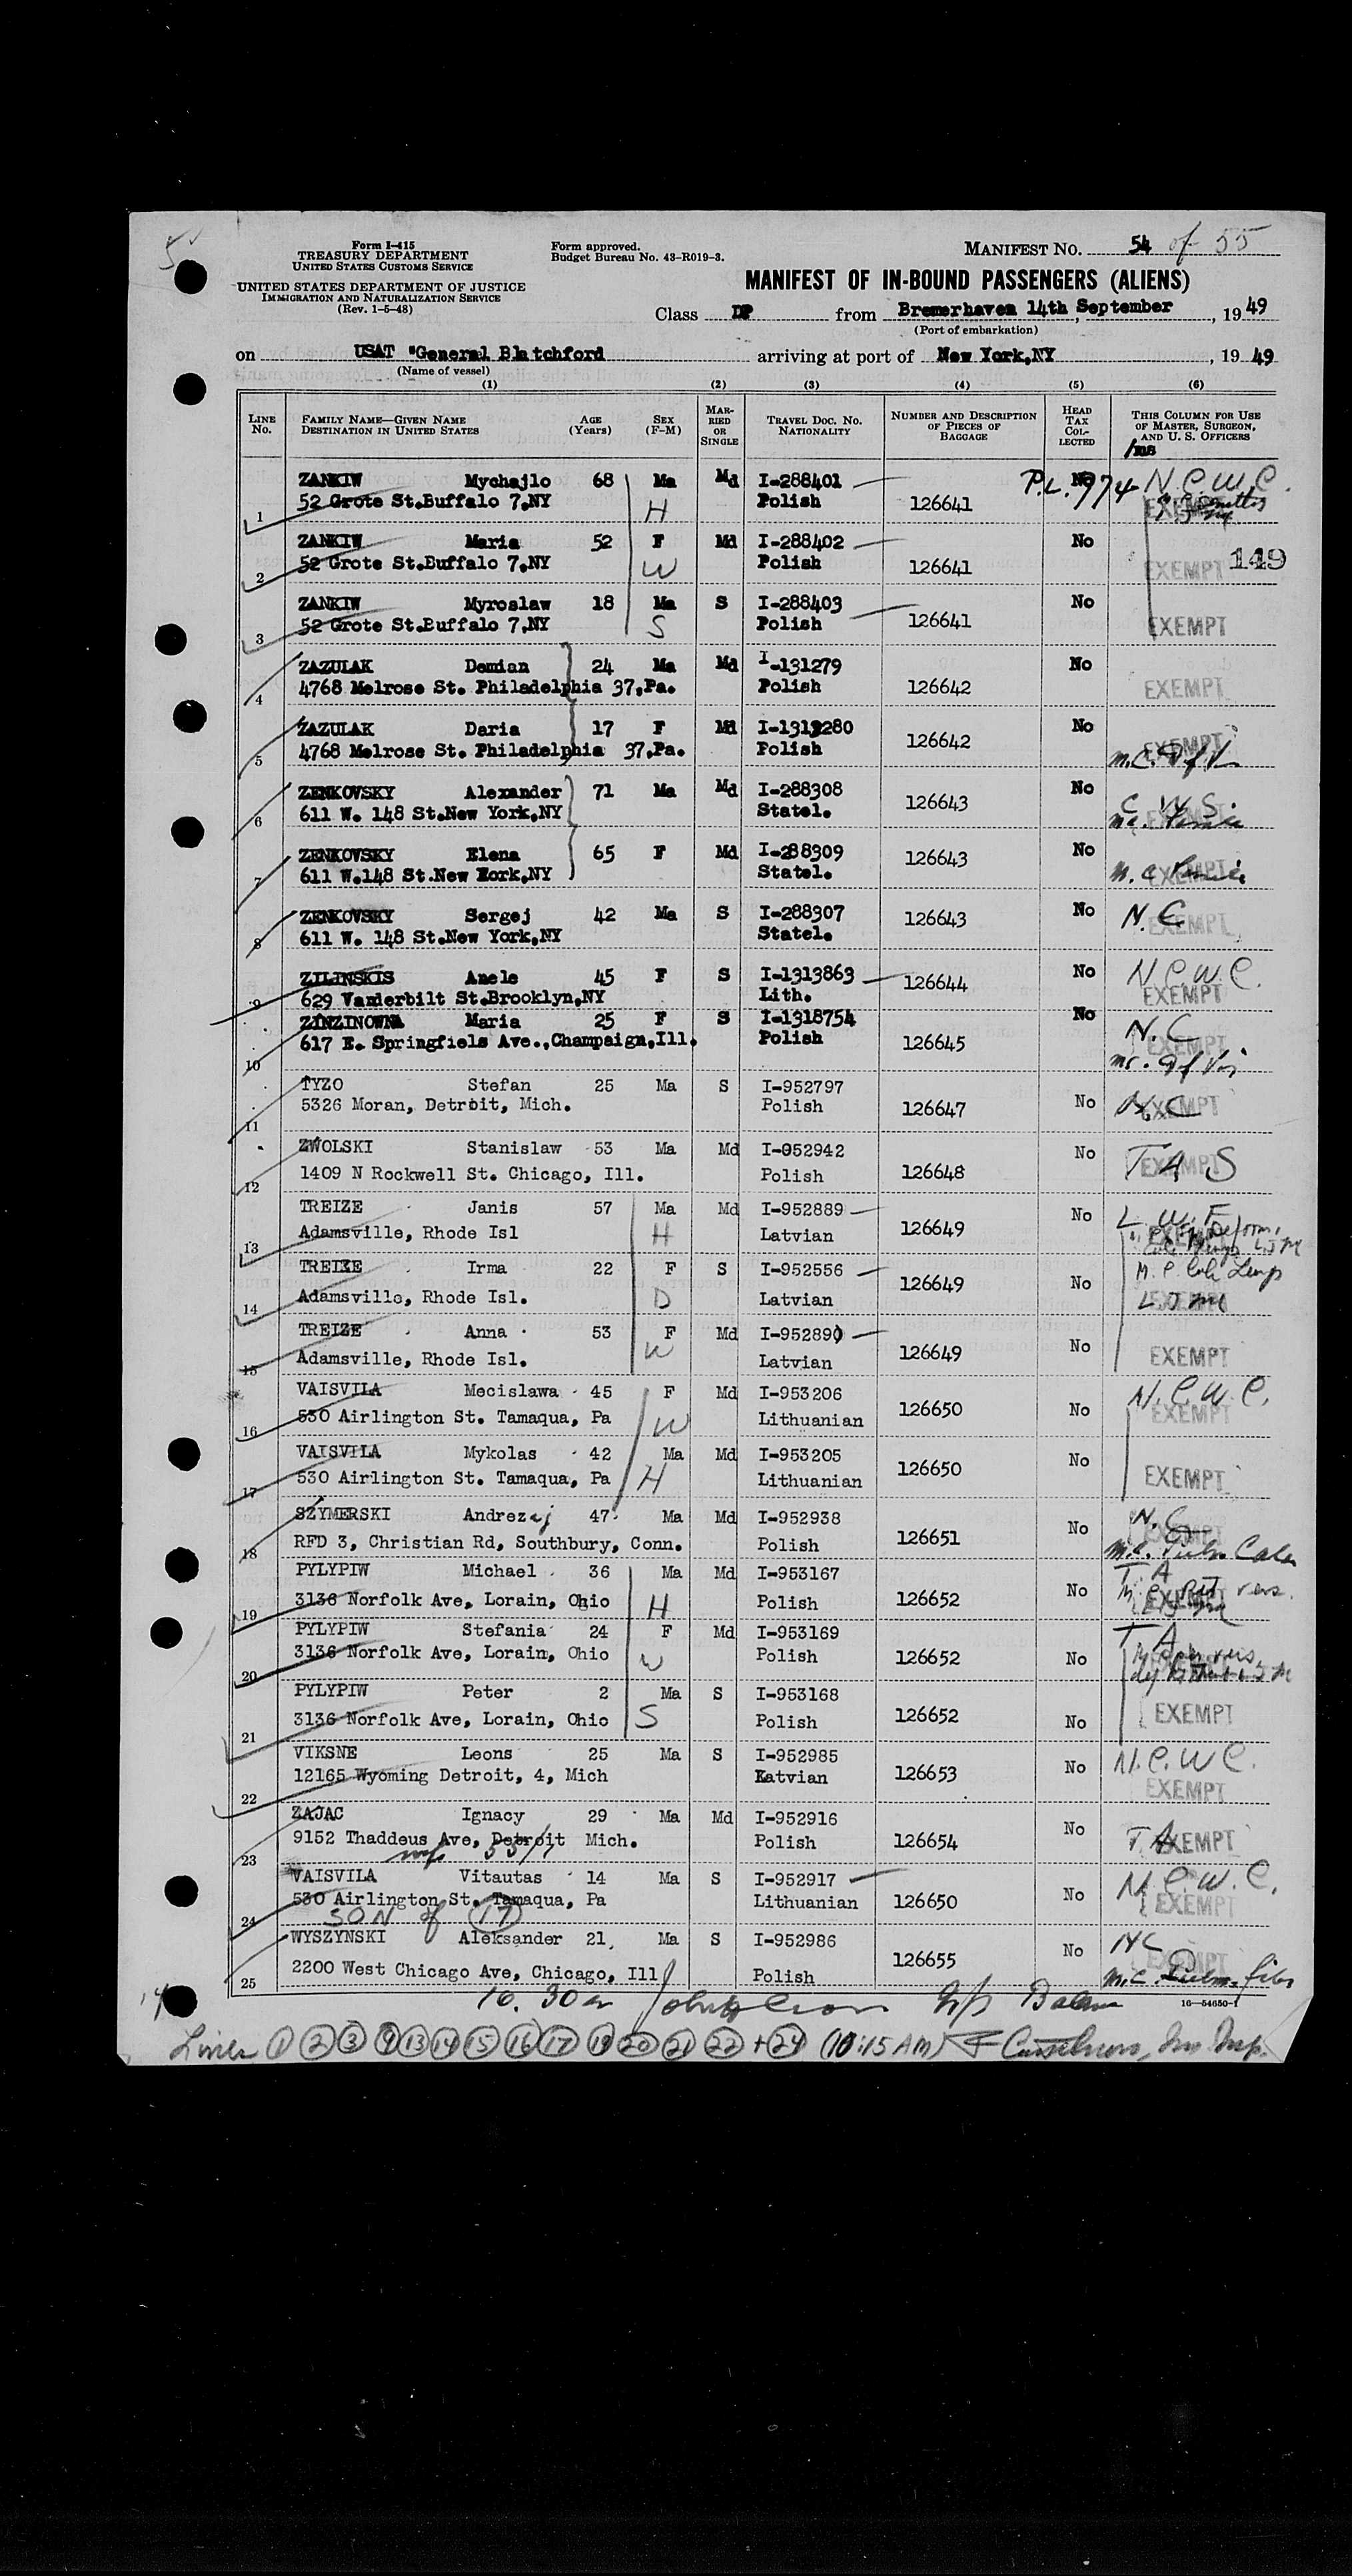 5
Form I-415
TREASURY DEPARTMENT
UNITED STATES CUSTOMS SERVICE
UNITED STATES DEPARTMENT OF JUSTICE
IMMIGRATION AND NATURALIZATION SERVICE
(Rev. 1-5-48)
Form approved.
Budget Bureau No. 43-R019-3.
MANIFEST NO. 54 of 55
MANIFEST OF IN-BOUND PASSENGERS (ALIENS)
Class DP from Bremerhaven 14th, September, 1949
(Port of embarkation)
on USAT "General Blatchford arriving at port of New York,NY, 1949
(Name of vessel)
(1) (2) (3) (4) (5) (6)
LINE No. FAMILY NAME—GIVEN NAME DESTINATION IN UNITED STATES AGE (Years) SEX (F-M) MARRIED OR SINGLE TRAVEL DOC. NO. NATIONALITY NUMBER AND DESCRIPTION OF PIECES OF BAGGAGE HEAD TAX COLLECTED THIS COLUMN FOR USE OF MASTER, SURGEON, AND U. S. OFFICERS
/ms
ZANKIW Mychajlo 68 Ma Md I-288401 No N.C.W.C.
1 52 Grote St.Buffalo 7,NY H Polish 126641 P.L. 774 EXEMPT
ZANKIW Maria 52 F Md I-288402 No
2 52 Grote St.Buffalo 7,NY W Polish 126641 EXEMPT 149
ZANKIW Myroslaw 18 Ma S I-288403 No
3 52 Grote St.Buffalo 7,NY S Polish 126641 EXEMPT
ZAZULAK Demian 24 Ma Md I-131279 No
4 4768 Melrose St. Philadelphia 37,Pa. Polish 126642 EXEMPT
ZAZULAK Daria 17 F Md I-1313280 No
5 4768 Melrose St. Philadelphia 37,Pa. Polish 126642 EXEMPT
ZENKOVSKY Alexander 71 Ma Md I-288308 No C.W.S.
6 611 W. 148 St.New York,NY Statel. 126643 EXEMPT
ZENKOVSKY Elena 65 F Md I-288309 No
7 611 W.148 St.New Eork,NY Statel. 126643 EXEMPT
ZENKOVSKY Sergej 42 Ma S I-288307 No N.C
8 611 W. 148 St.New York,NY Statel. 126643 EXEMPT
ZILINSKIS Anele 45 F S I-1313863 No N.C.W.C.
9 629 Vanderbilt St.Brooklyn,NY Lith. 126644 EXEMPT
ZINZINOWNA Maria 25 F S I-1318754 No N.C
10 617 E. Springfiels Ave.,Champaign,Ill. Polish 126645 EXEMPT
TYZO Stefan 25 Ma S I-952797
11 5326 Moran, Detroit, Mich. Polish 126647 No N.C EXEMPT
ZWOLSKI Stanislaw 53 Ma Md I-052942 No
12 1409 N Rockwell St. Chicago, Ill. Polish 126648 EXEMPT
TREIZE Janis 57 Ma Md I-952889 No L.W.F
13 Adamsville, Rhode Isl H Latvian 126649 EXEMPT
TREIZE Irma 22 F S I-952556
14 Adamsville, Rhode Isl. D Latvian 126649 No EXEMPT
TREIZE Anna 53 F Md I-952890
15 Adamsville, Rhode Isl. W Latvian 126649 No EXEMPT
VAISVILA Mecislawa 45 F Md I-953206 N.C.W.C.
16 530 Airlington St. Tamaqua, Pa W Lithuanian 126650 No EXEMPT
VAISVILA Mykolas 42 Ma Md I-953205
17 530 Airlington St. Tamaqua, Pa H Lithuanian 126650 No EXEMPT
SZYMERSKI Andrezej 47 Ma Md I-952938 N.C
18 RFD 3, Christian Rd, Southbury, Conn. Polish 126651 No EXEMPT
PYLYPIW Michael 36 Ma Md I-953167 T.A
19 3136 Norfolk Ave, Lorain, Ohio H Polish 126652 No EXEMPT
PYLYPIW Stefania 24 F Md I-953169 T A
20 3136 Norfolk Ave, Lorain, Ohio W Polish 126652 No
PYLYPIW Peter 2 Ma S I-953168
21 3136 Norfolk Ave, Lorain, Ohio S Polish 126652 No EXEMPT
VIKSNE Leons 25 Ma S I-952985 N.C.W.C.
22 12165 Wyoming Detroit, 4, Mich Katvian 126653 No EXEMPT
ZAJAC Ignacy 29 Ma Md I-952916
23 9152 Thaddeus Ave, Detroit Mich. Polish 126654 No T A EXEMPT
VAISVILA Vitautas 14 Ma S I-952917 N.C.W.C.
24 530 Airlington St. Tamaqua, Pa Lithuanian 126650 No EXEMPT
SON of 17
WYSZYNSKI Aleksander 21 Ma S I-952986 NC
25 2200 West Chicago Ave, Chicago, Ill Polish 126655 No EXEMPT
16—54650-1
10.30am
Lines 1 2 3 9 13 14 15 16 17 19 20 21 22 + 24 (10:15 AM)